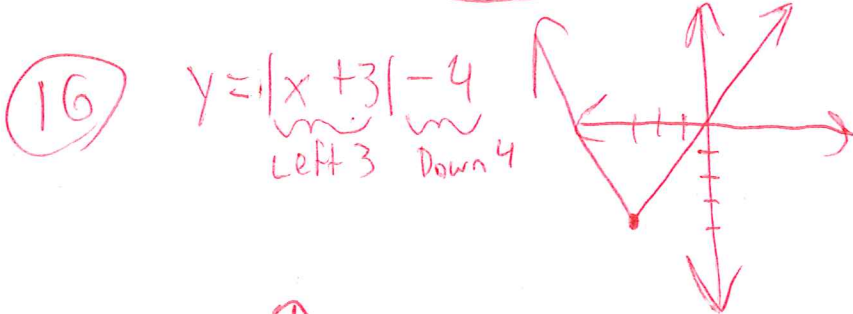 16 y = |x + 3| - 4
Left 3 Down 4